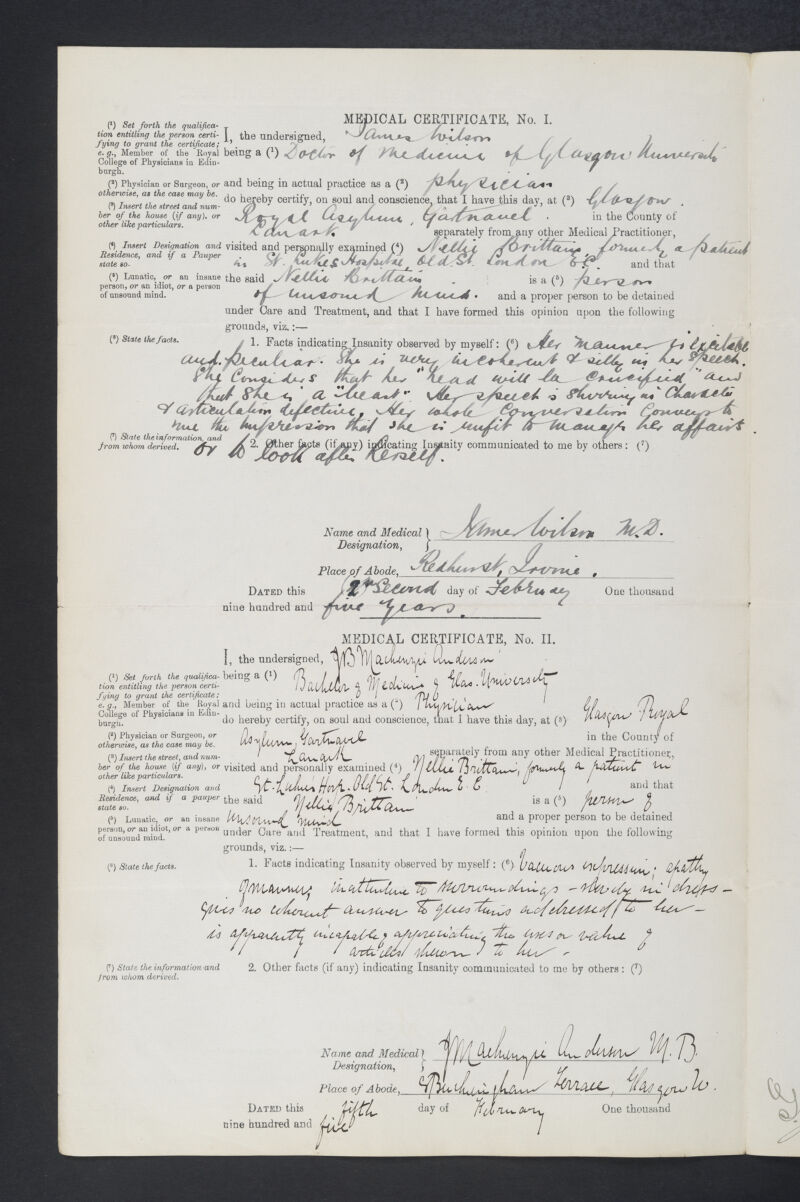 MEDICAL CERTIFICATE, No. I.
(¹) Set forth the qualifica-
tion entitling the person certi-
fying to grant the certificate;
e.g., Member of the Royal
College of Physicians in Edin-
burgh.
(²) Physician or Surgeon, or
otherwise, as the case may be.
(³) Insert the street and num-
ber of the house (if any), or
other like particulars.
(⁴) Insert Designation and
Residence, and if a Pauper
state so.
(⁵) Lunatic, or an insane
person, or an idiot, or a person
of unsound mind.
I, the undersigned, James Wilson
being a (¹) Doctor of Medicine of Glasgow University
and being in actual practice as a (²) physician
do hereby certify, on soul and conscience, that I have this day, at (³) Glasgow.
Royal Asylum, Gartnavel. in the County of
Lanark separately from any other Medical Practitioner,
visited and personally examined (⁴) Nellie Brittain, formerly a patient
in St. Lukes Hospital, Old St. London E.C. and that
the said Nellie Brittain is a (⁵) person
of unsound mind. and a proper person to be detained
under Care and Treatment, and that I have formed this opinion upon the following
grounds, viz.:—
(⁶) State the facts.
1. Facts indicating Insanity observed by myself: (⁶) Her manner is excitable
and peculiar. She is very incoherent & silly in her speech.
She Considers that her "head will be crucified" and
that she is a "beast". Her speech is slurring in Character
& articulation defective. Her whole Conversation Conveys to
me the impression that she is unfit to manage her affairs
or to look after herself.
(⁷) State the information, and
from whom derived.
2. Other facts (if any) indicating Insanity communicated to me by others: (⁷)
Name and Medical Designation, James Wilson M.D.
Place of Abode, Redhurst, Irvine.
DATED this Second day of February One thousand
nine hundred and five years.
MEDICAL CERTIFICATE, No. II.
(¹) Set forth the qualifica-
tion entitling the person certi-
fying to grant the certificate;
e.g., Member of the Royal
College of Physicians in Edin-
burgh.
(²) Physician or Surgeon, or
otherwise, as the case may be.
(³) Insert the street, and num-
ber of the house (if any), or
other like particulars.
(⁴) Insert Designation and
Residence, and if a pauper
state so.
(⁵) Lunatic, or an insane
person, or an idiot, or a person
of unsound mind.
I, the undersigned, JB Mackenzie Anderson
being a (¹) Bachelor of Medicine of Glas. University
and being in actual practice as a (²) Physician
do hereby certify, on soul and conscience, that I have this day, at (³) Glasgow Royal
Asylum, Gartnavel in the County of
Lanark separately from any other Medical Practitioner,
visited and personally examined (⁴) Nellie Brittain, formerly a patient in
St. Luke's Hosp. Old St. London E.C. and that
the said Nellie Brittain is a (⁵) person of
unsound mind and a proper person to be detained
under Care and Treatment, and that I have formed this opinion upon the following
grounds, viz.:—
(⁶) State the facts.
1. Facts indicating Insanity observed by myself: (⁶) Vacuous expression; apathy
of manner; inattentive to surroundings – untidy in dress –
gives no coherent answer to questions addressed to her –
is apparently incapable of appreciating the uses or value of
articles shown to her –
(⁷) State the information and
from whom derived.
2. Other facts (if any) indicating Insanity communicated to me by others: (⁷)
Name and Medical Designation, J Mackenzie Anderson M.B.
Place of Abode, Buckingham Terrace, Glasgow W.
DATED this fifth day of February One thousand
nine hundred and five